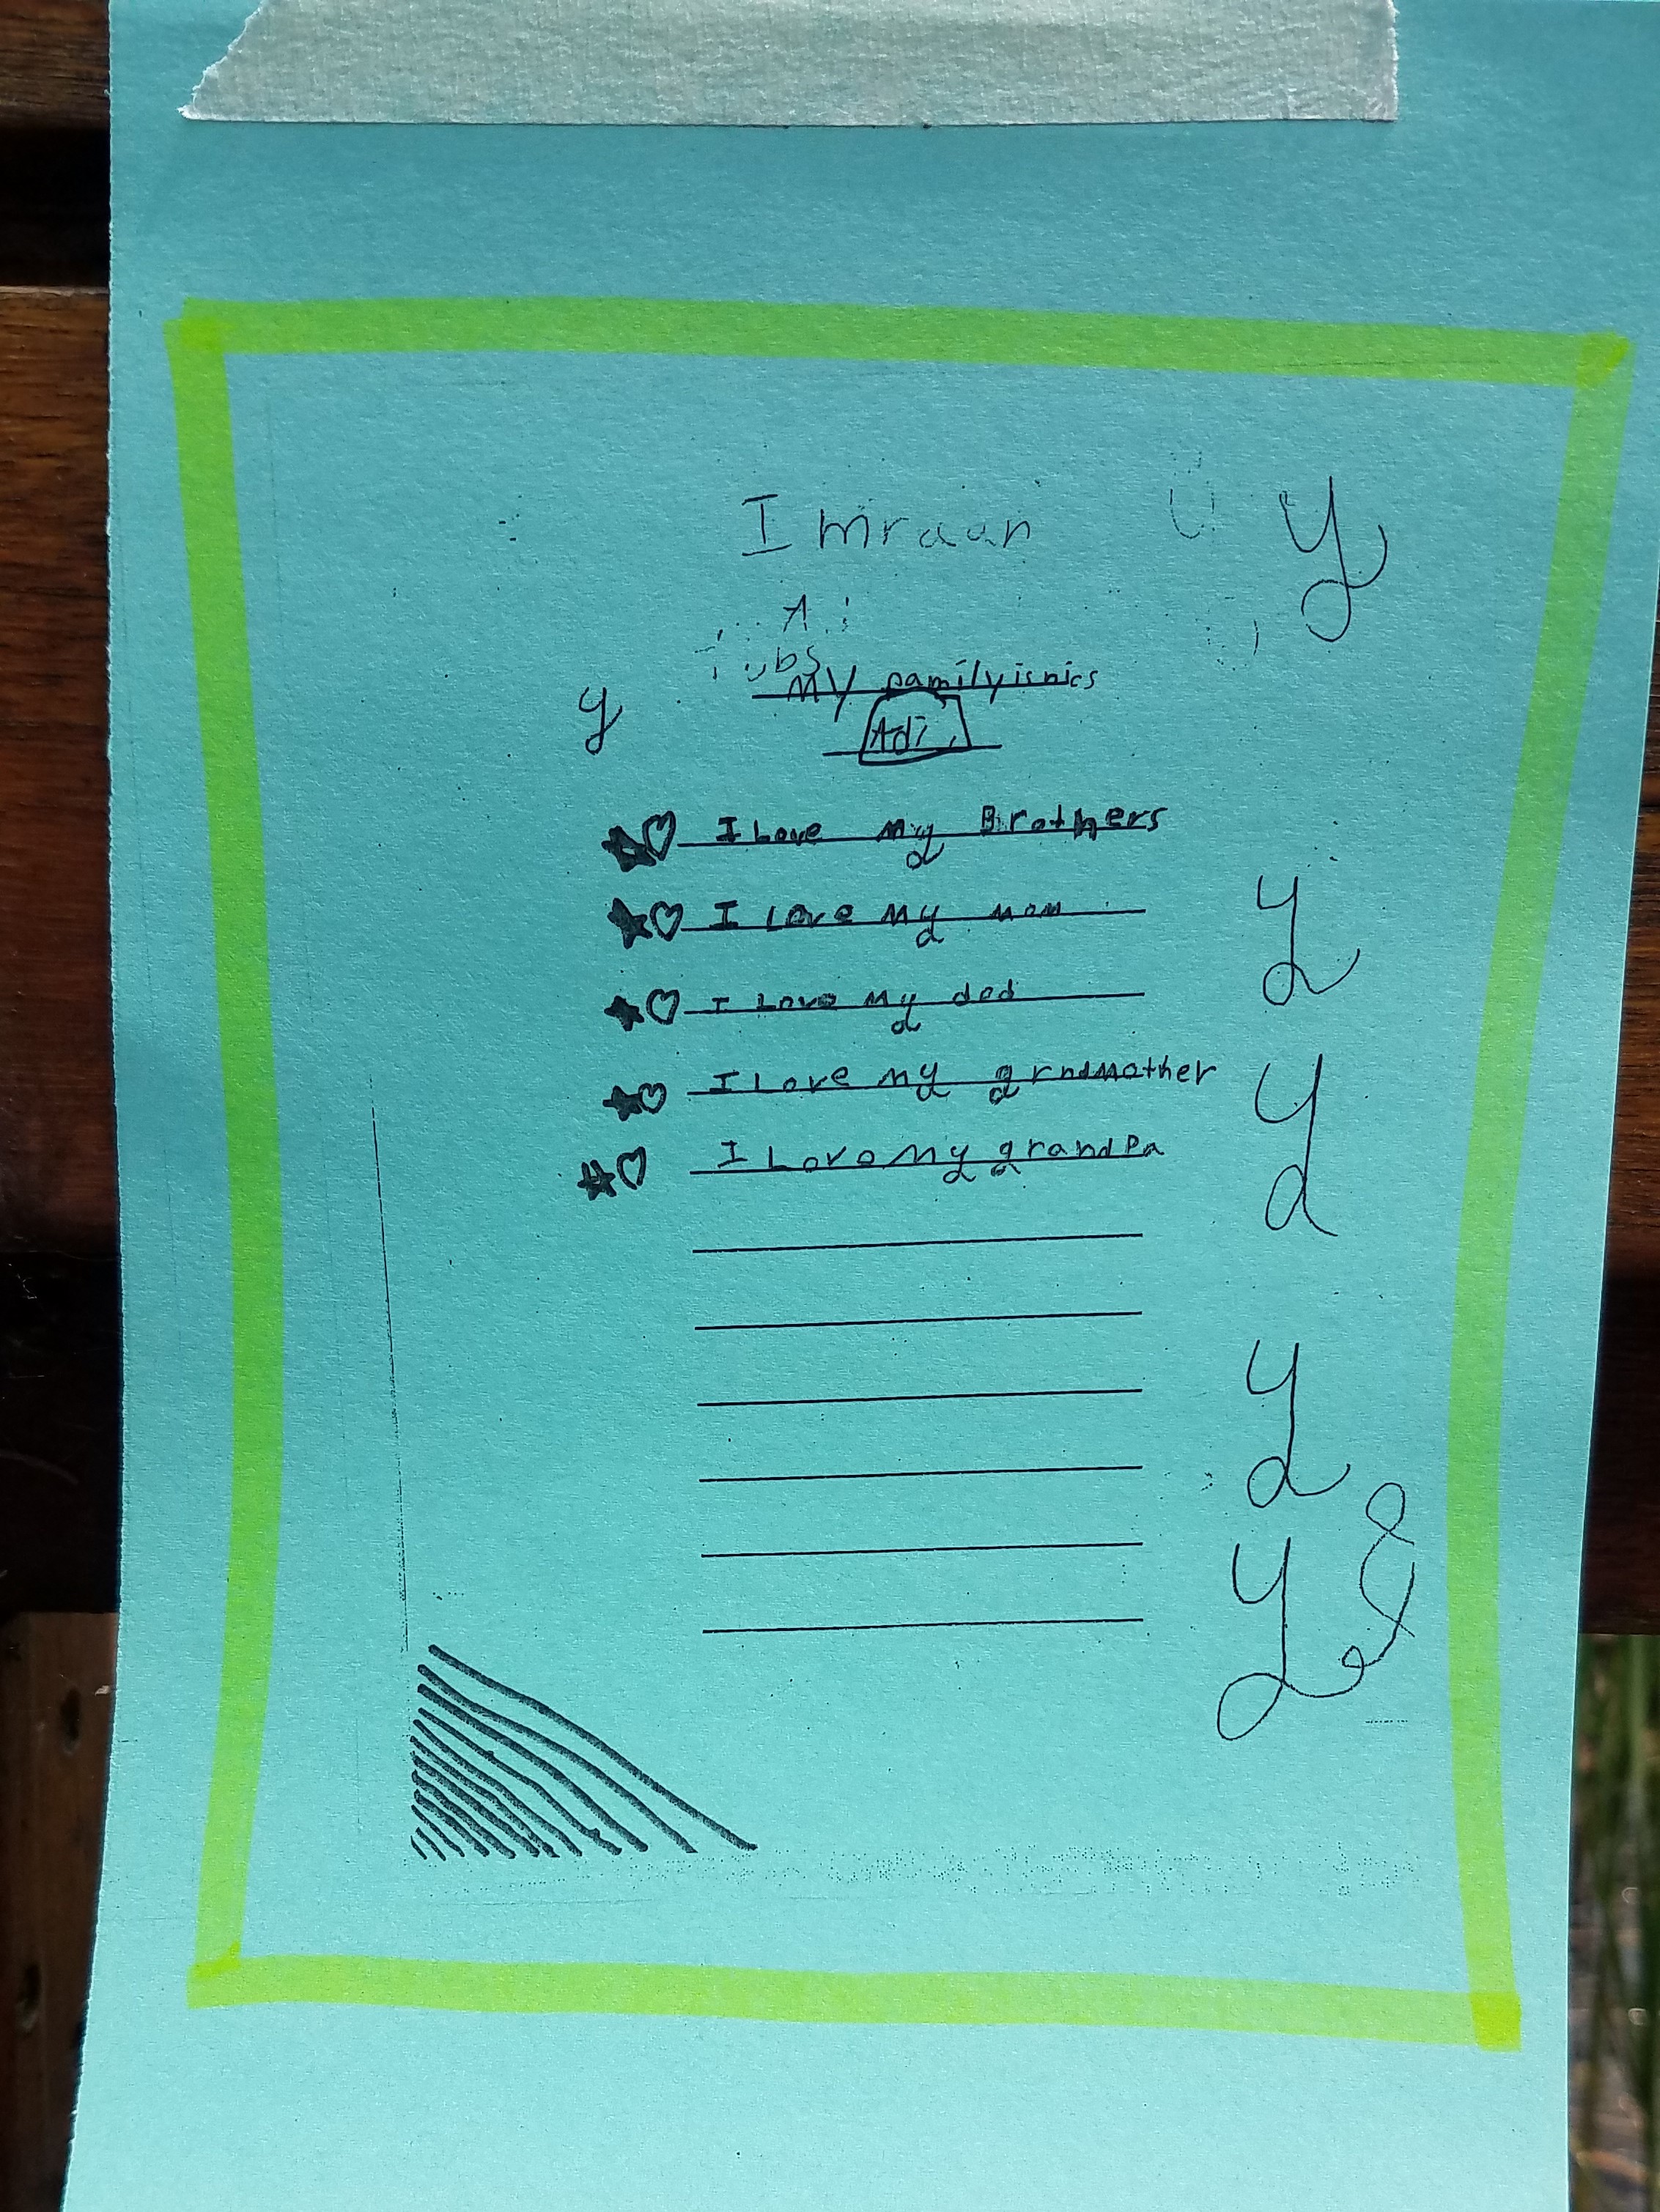 Imraan
y
My pamily is nics
y
Adi
I Love my Brothers
I Love My mom
y
I Love My dad
I Love my grndmother
y
I Love My grandPa
y
y